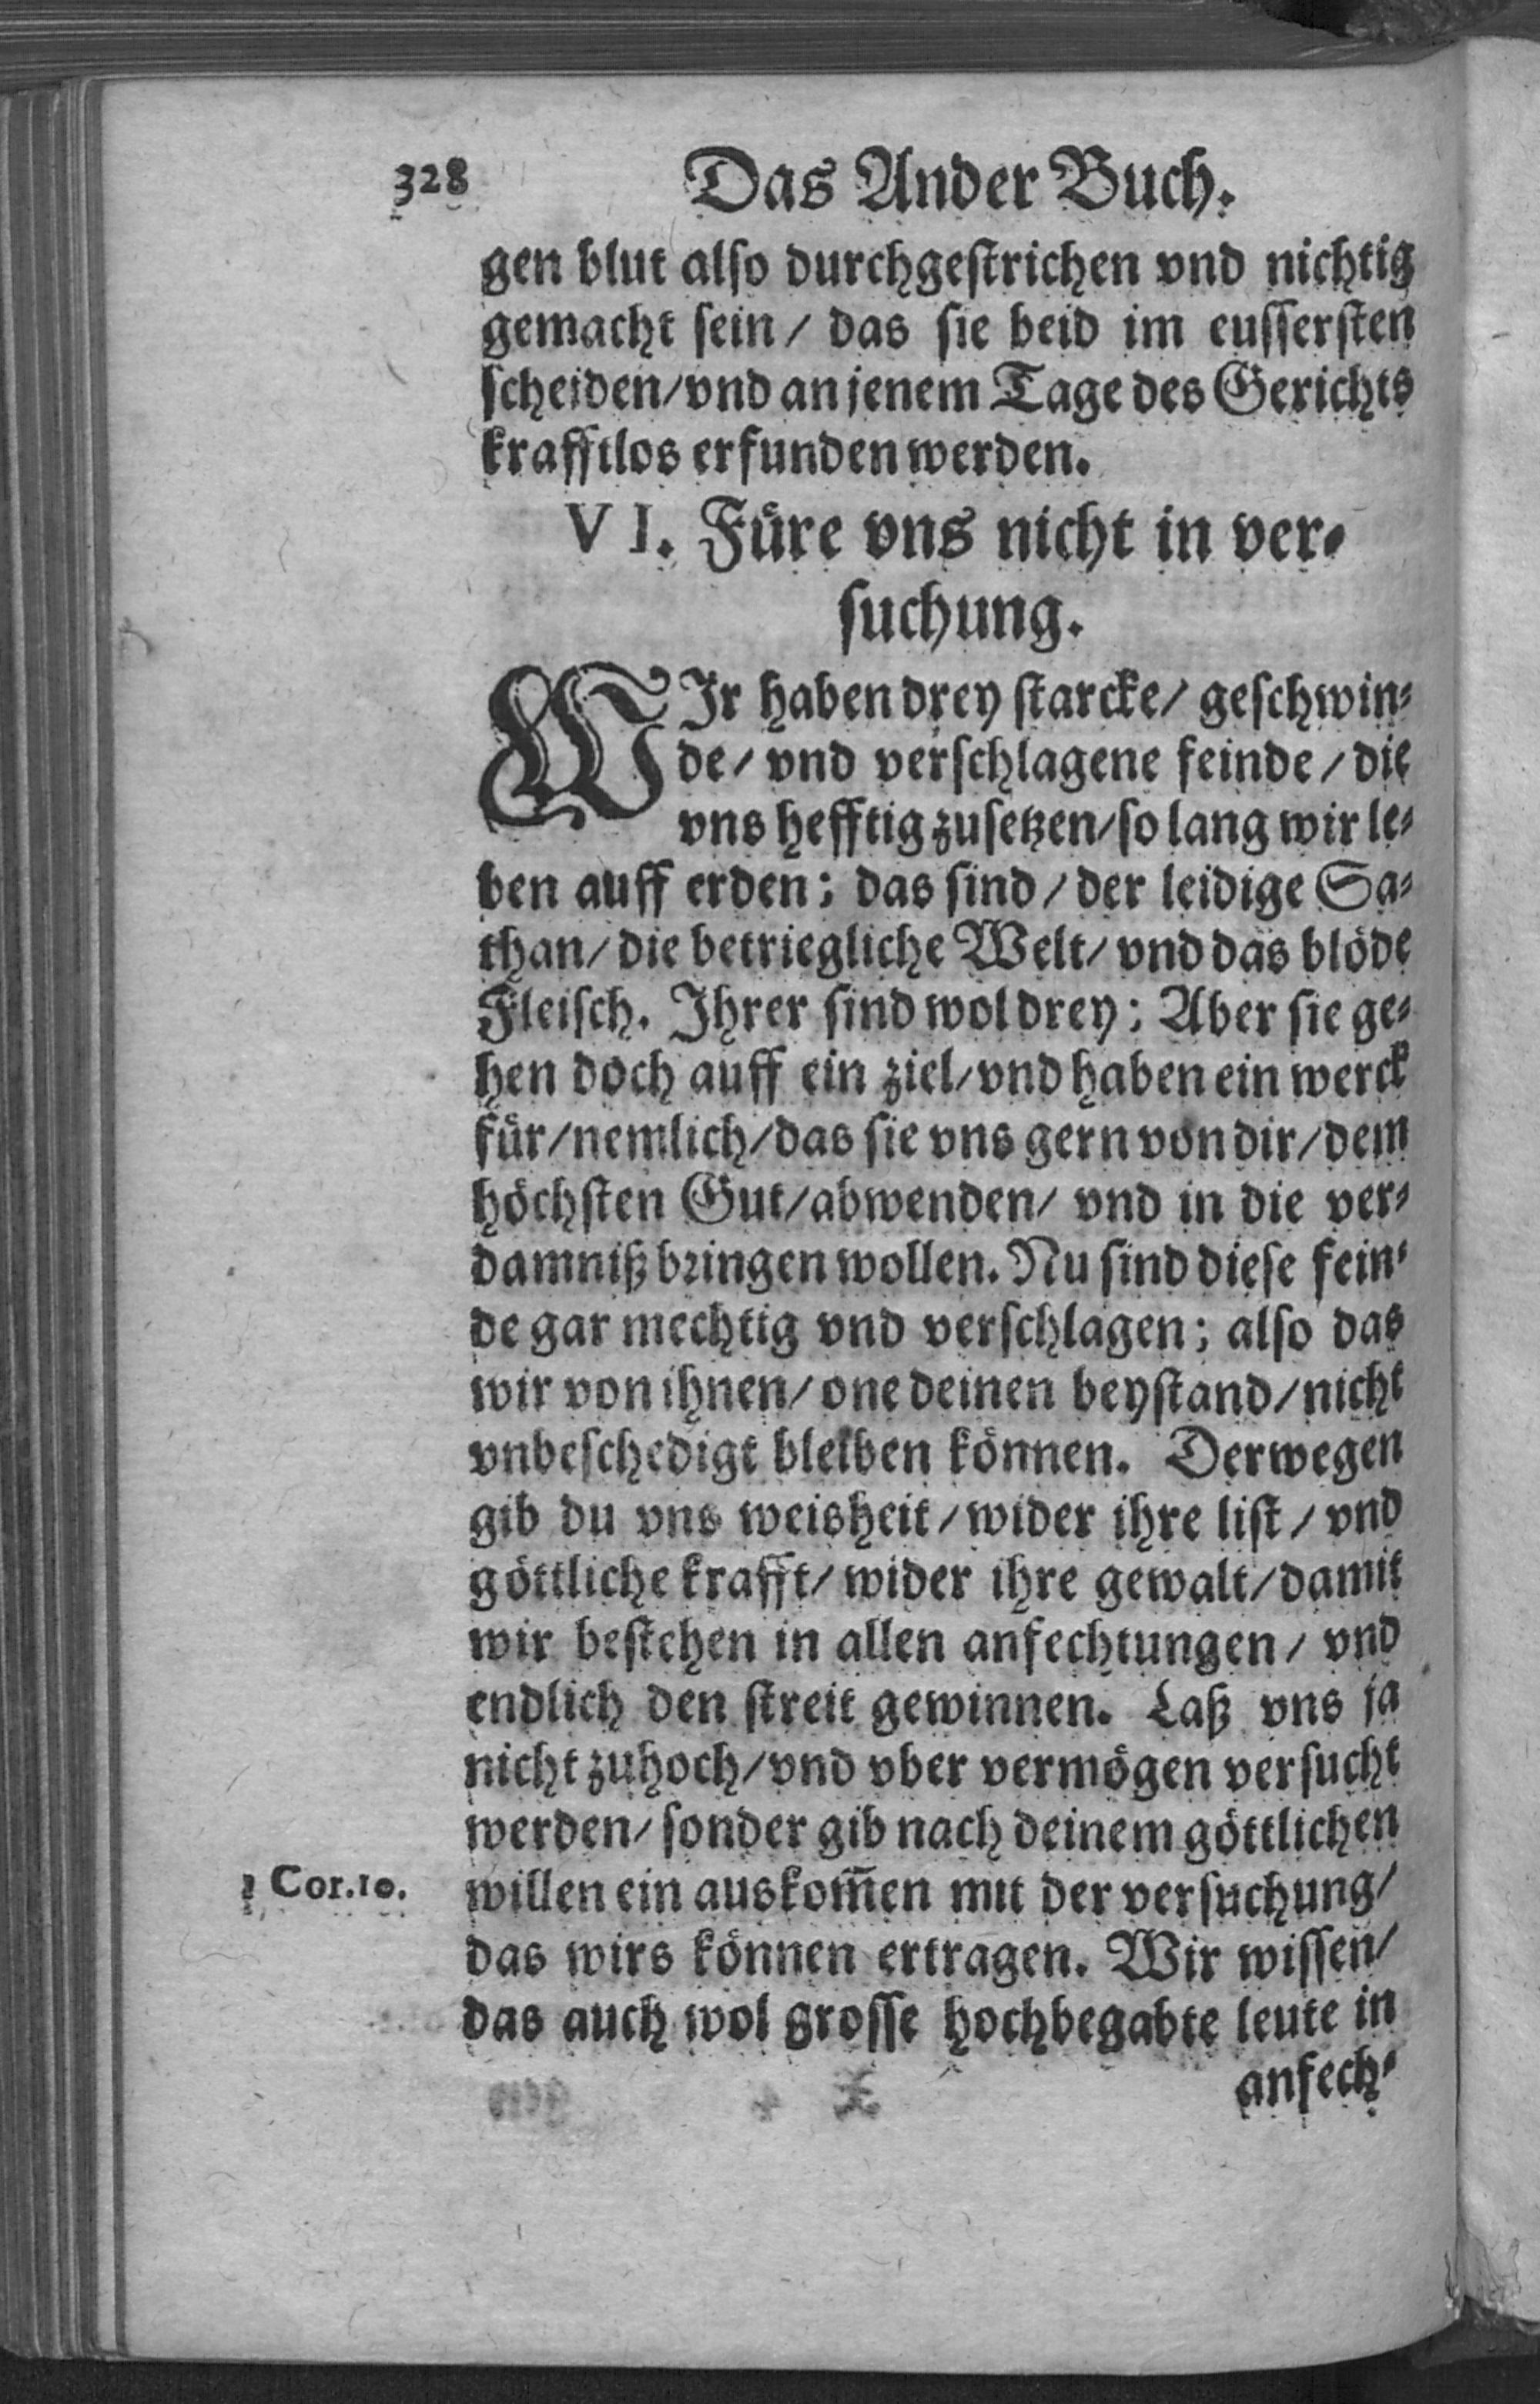 328 Das Ander Buch.
gen blut also durchgestrichen vnd nichtig
gemacht sein / das sie beid im eussersten
scheiden/vnd an jenem Tage des Gerichts
krafftlos erfunden werden.
VI. Füre vns nicht in ver-
suchung.
WIr haben drey starcke/ geschwin-
de/ vnd verschlagene feinde / die
vns hefftig zusetzen/so lang wir le-
ben auff erden; das sind / der leidige Sa-
than/ die betriegliche Welt/ vnd das blöde
Fleisch. Ihrer sind wol drey; Aber sie ge-
hen doch auff ein ziel/vnd haben ein werck
für/nemlich/das sie vns gern von dir/dem
höchsten Gut/abwenden/ vnd in die ver-
damniß bringen wollen. Nu sind diese fein-
de gar mechtig vnd verschlagen; also das
wir von ihnen/ one deinen beystand/nicht
vnbeschedigt bleiben können. Derwegen
gib du vns weisheit/wider ihre list / vnd
göttliche krafft/ wider ihre gewalt/damit
wir bestehen in allen anfechtungen / vnd
endlich den streit gewinnen. Laß vns ja
nicht zuhoch/vnd vber vermögen versucht
werden/ sonder gib nach deinem göttlichen
1 Cor.10. willen ein auskom̃en mit der versuchung/
das wirs können ertragen. Wir wissen/
das auch wol grosse hochbegabte leute in
anfech-